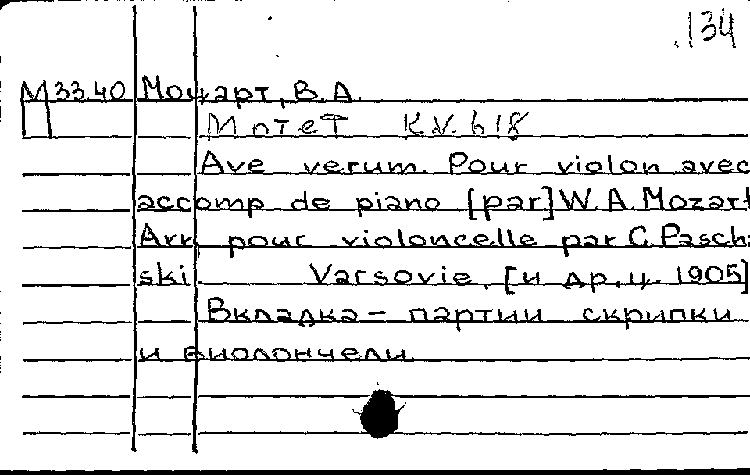 134
М 33.40 Моцарт, В.А.
П Мотет KV. 618
Ave verum. Pour violon avec
accomp de piano [par] W. A. Mozart
Arr. pour violoncelle par C. Pasch
ski Varsovie, [и др., ц. 1905]
Вкладка – партии скрипки
и виолончели.